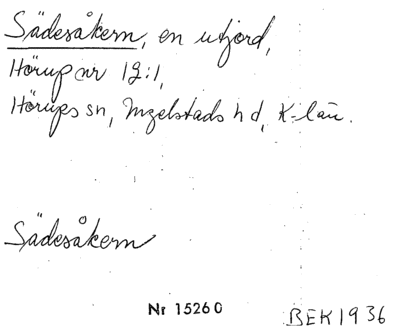 Sädesåkern, en utjord,
Hörup nr 12:1,
Hörups sn, Ingelstads hd, K-län.
Sädesåkern
Nr 15260
BEK 1936